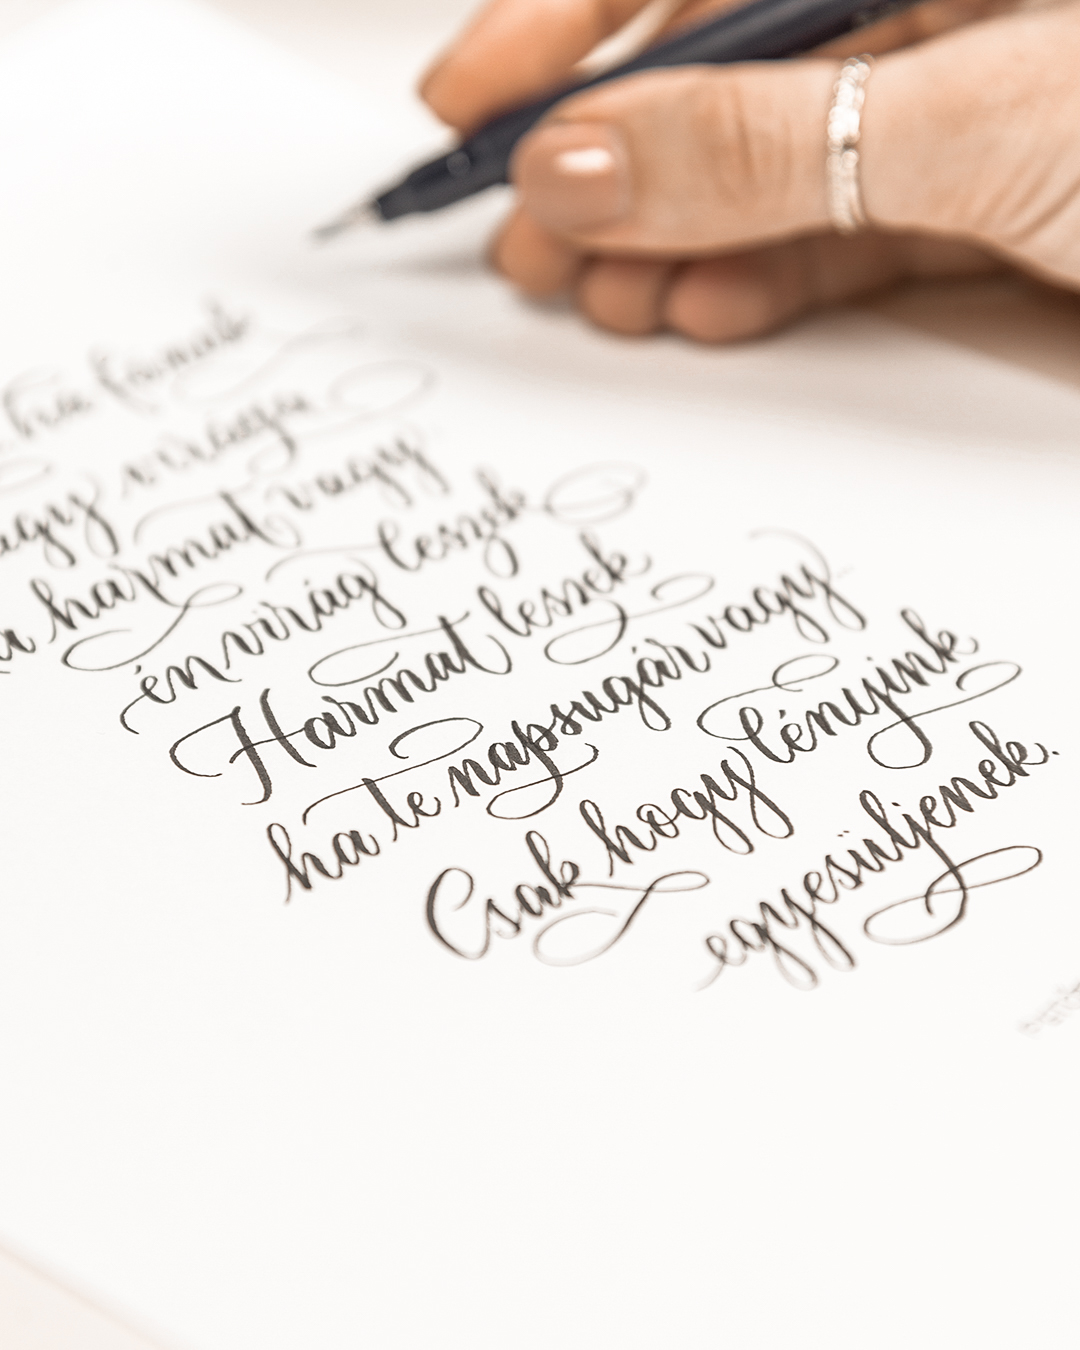 ha fának
agy virága
a harmat vagy
én virág leszek
Harmat leszek
ha te napsugár vagy
Csak hogy lényink
egyesüljenek.